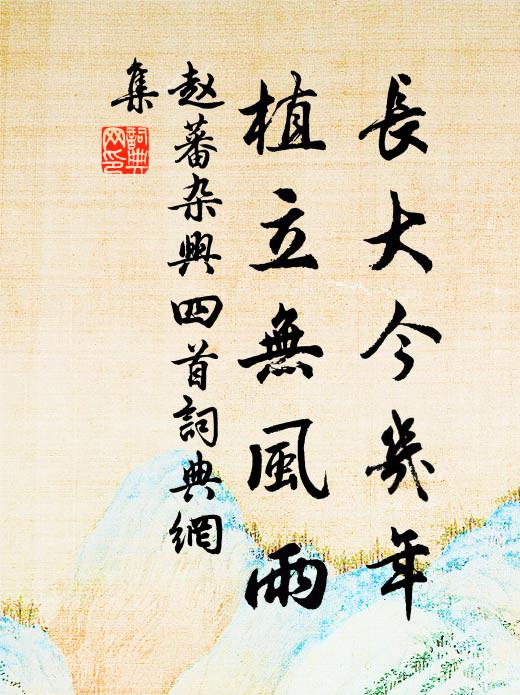 長大今幾年
植立無風雨
赵蕃杂興四首詞典網
集
詞典
网印